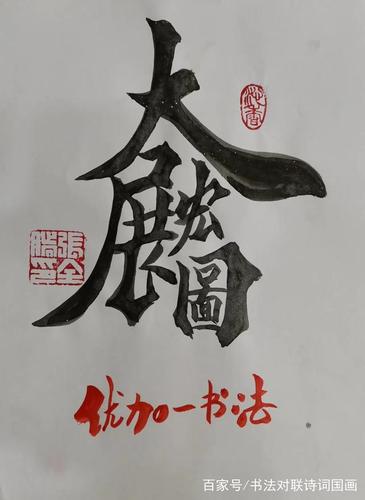 大展宏圖
优加一书法
張全勝印
百家号/书法对联诗词国画